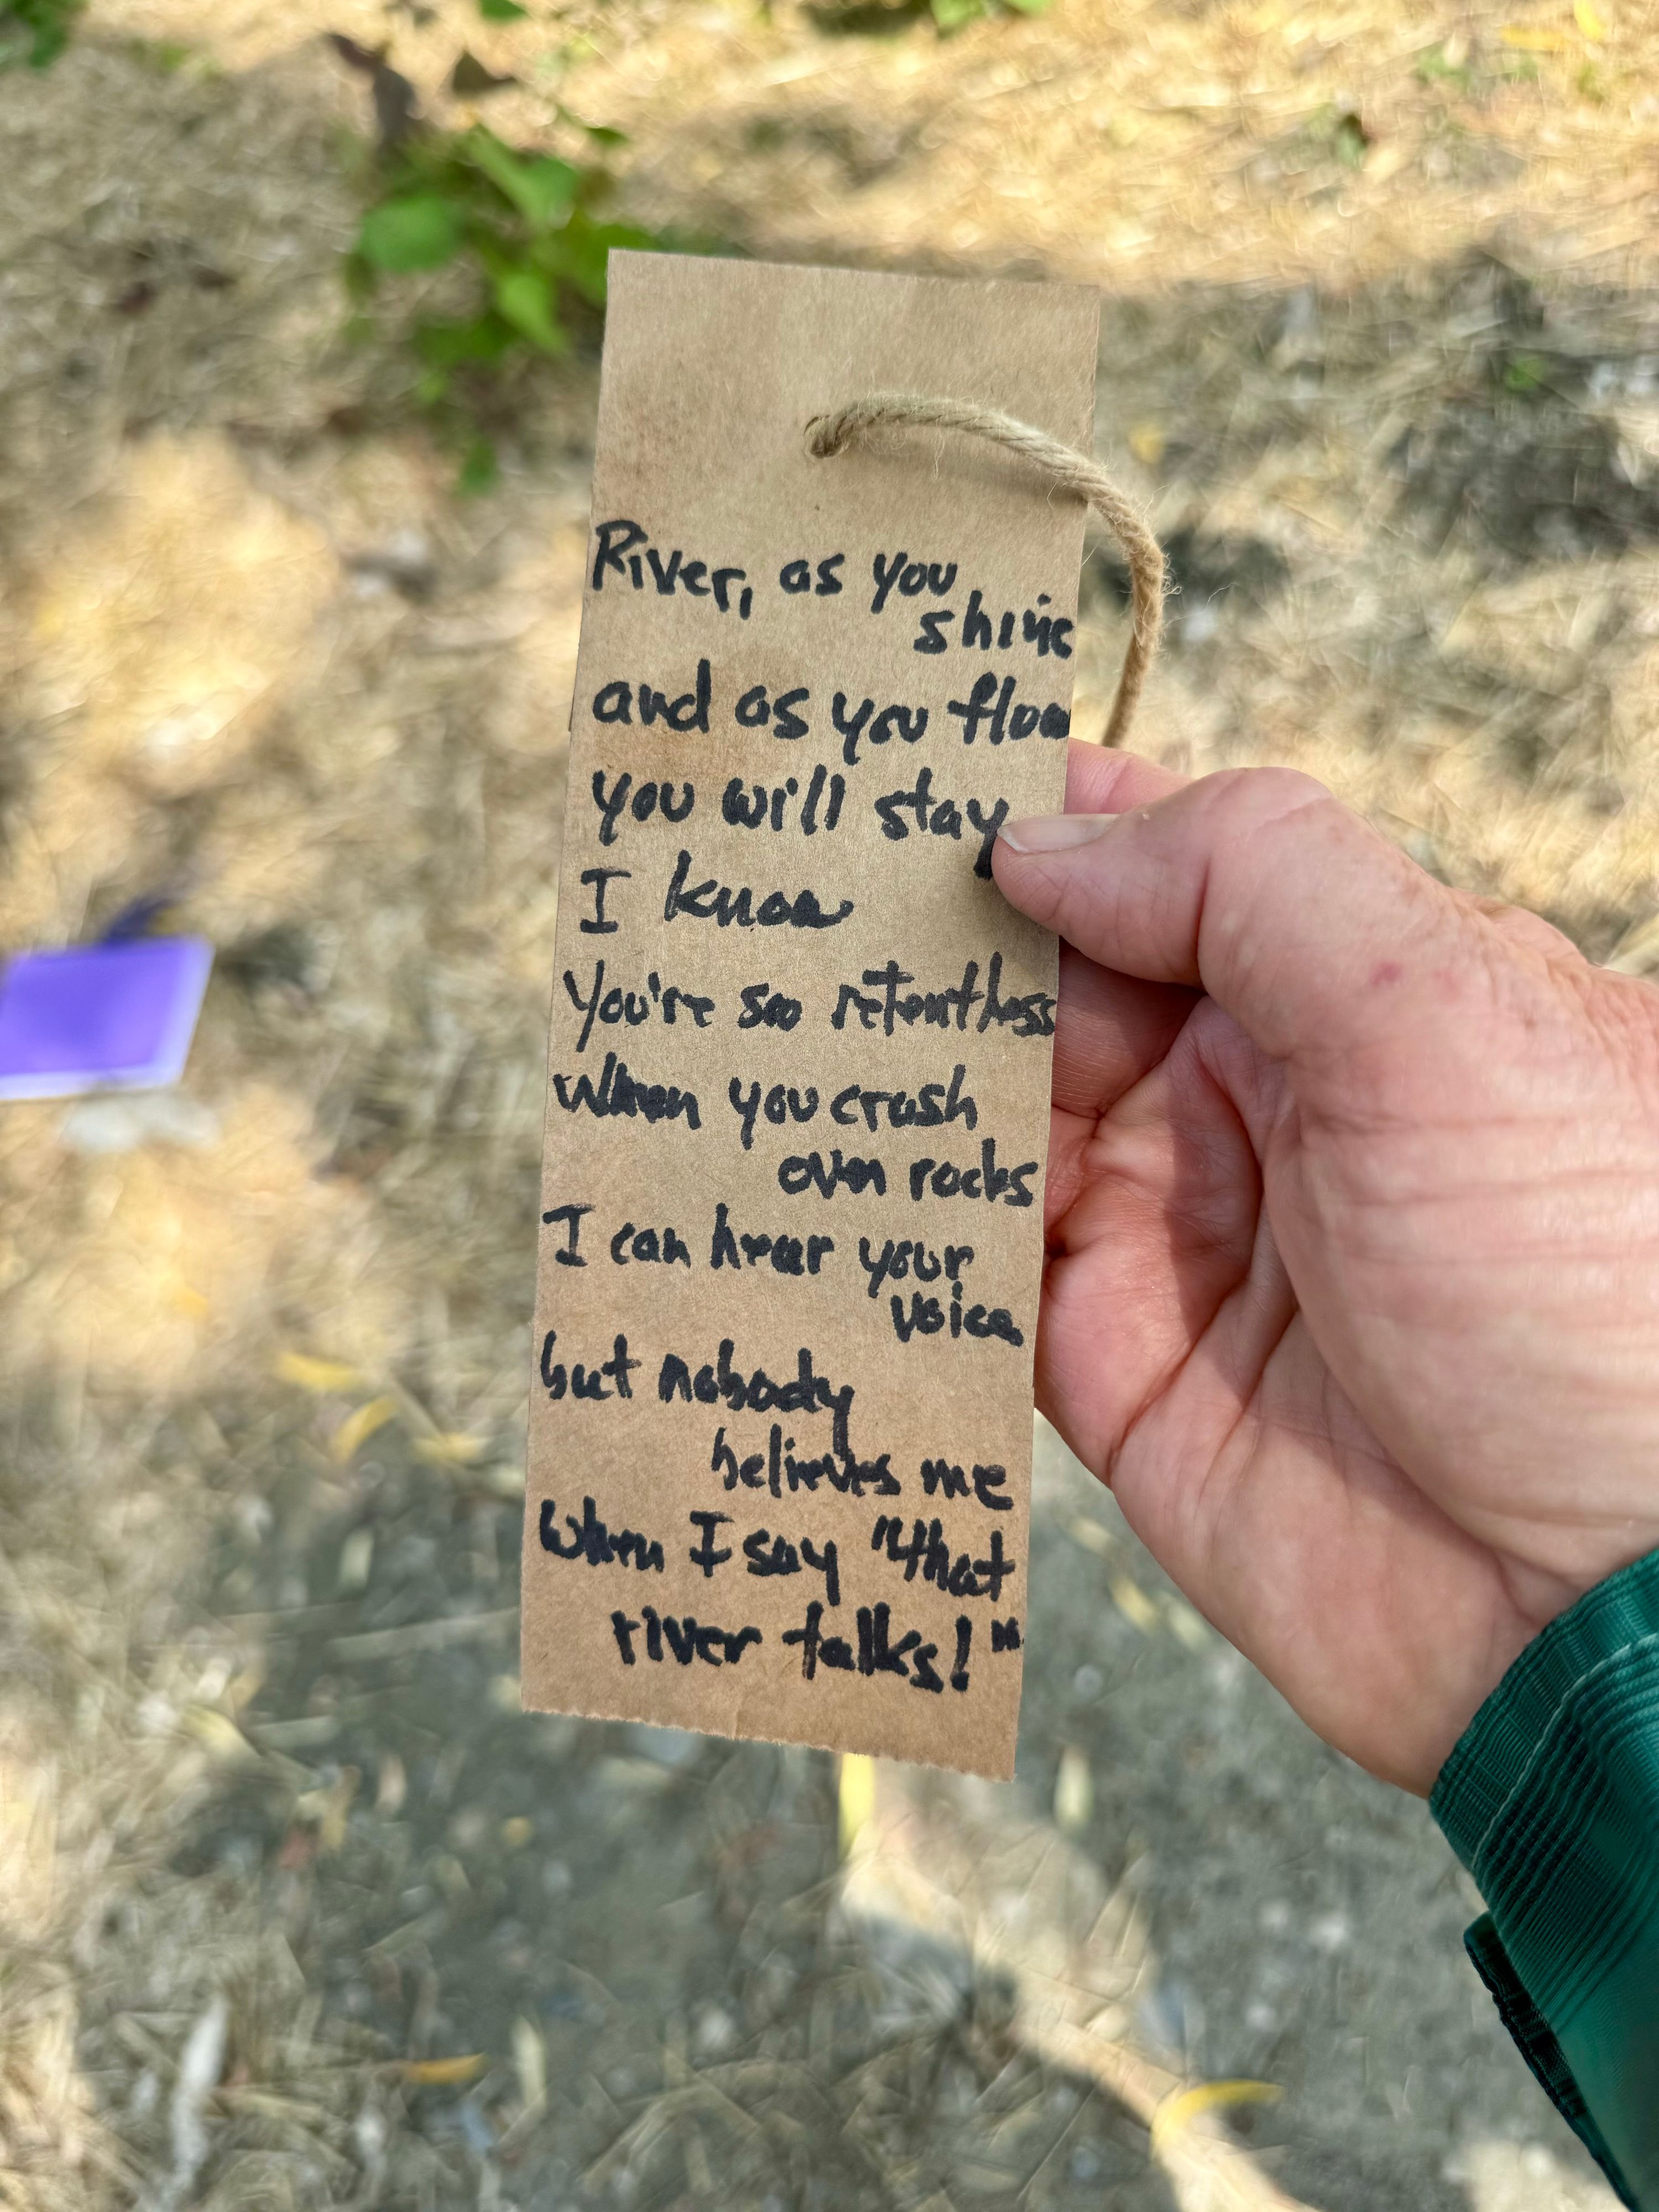 River, as you
shine
and as you flow
you will stay
I know
You're so relentless
When you crash
over rocks
I can hear your
voice
but nobody
believes me
When I say "that
river talks!"